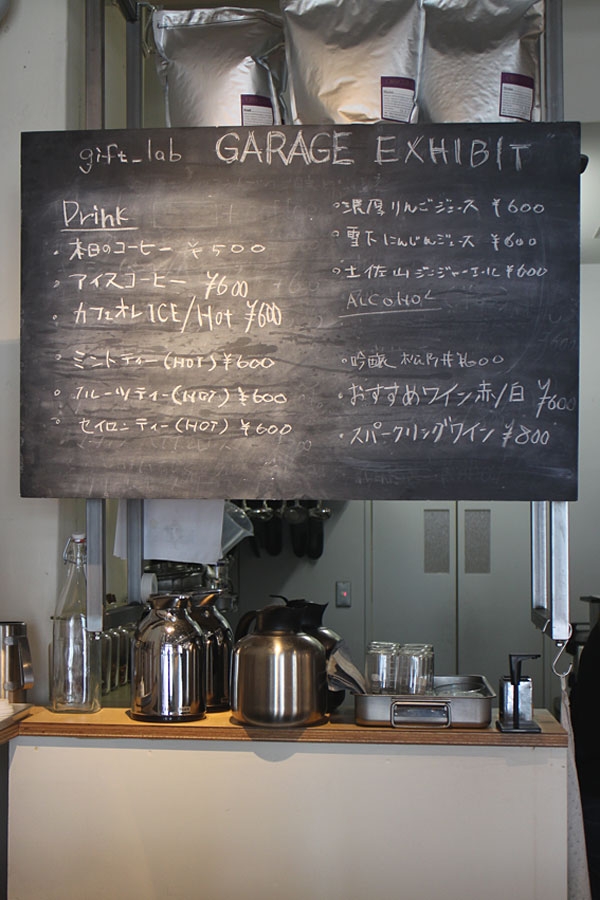 gift_lab GARAGE EXHIBIT
Drink
・本日のコーヒー ¥500
・アイスコーヒー ¥600
・カフェオレ ICE/Hot ¥600
・ミントティー(HOT) ¥600
・フルーツティー(HOT) ¥600
・セイロンティー(HOT) ¥600
・濃厚りんごジュース ¥600
・雪下にんじんジュース ¥600
・土佐山ジンジャーエール ¥600
ALCOHOL
・吟醸 ¥600
・おすすめワイン赤/白 ¥600
・スパークリングワイン ¥800